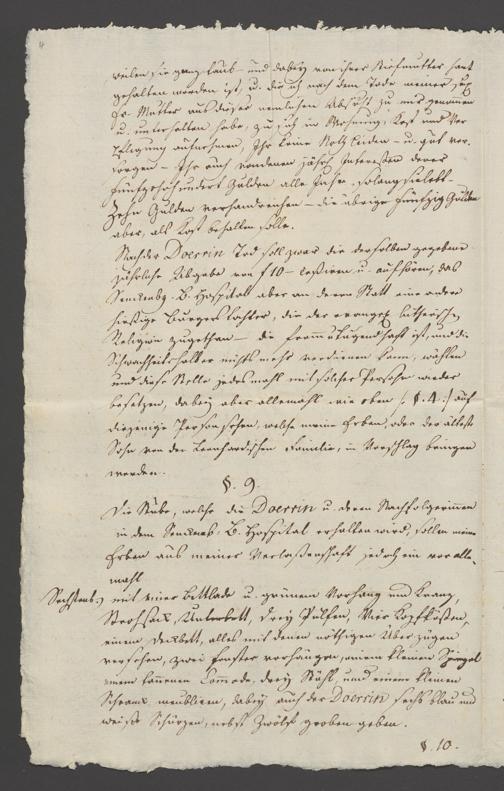 weilen sie ganz taub – und dabey von ihrer Stiefmutter hart
gehalten worden ist, u. die ich nach dem Tode meiner seel
Fr. Mutter aus dieser nemlichen Absicht zu mir genommen
u. unterhalten habe, zu sich in Wohnung, Kost und Ver
pflegung aufnehmen, Ihr keine Noth leiden – u. gut ver
sorgen – Ihr auch von denen jährl Interessen derer
fünfzehnhundert Gulden alle Jahr, solang sie lebt –
Zehn Gulden verhandreichen – die übrige fünfzig Gulden
aber, als Kost behalten solle.
Nach der Doerrin Tod soll zwar die derselben gegebene
jährliche Abgabe von f 10 – cessiren u. aufhören, das
Senckenbg. B. Hospital aber an deren Statt eine andere
hiesige Burgers Tochter, die der evangel lutherischn
Religion zugethan – die fromm u. tugendhaft ist, und die
Schwachheitshalber nichts mehr verdienen kann, wählen
und diese Stelle jedesmahl mit solcher Persohn wieder
besetzen, dabey aber allemahl wie oben /: §. 4 :/ auf
diejenige Persohn sehen, welche meine Erben, oder der älteste
Sohn von der Leonhardischen Familie, in Vorschlag bringen
werden.
§. 9.
Die Stube, welche die Doerrin u. deren Nachfolgerinnen
in dem Senckenb. B. Hospital erhalten wird, sollen meine
Erben aus meiner Verlassenschaft jedoch ein vor alle-
mahl
Sechstens mit einer Bettlade u. grünem Vorhang und Kranz,
Strohsack, Unterbett, drey Pülfen, Vier Kopfküssen,
einem Deckbett, alles mit denen nöthigen Überzügen
versehen, zwei Fenster vorhängen, einem kleinen Spiegel
einem tannenen Commode, drey Stühl, und einem kleinen
Schrank meubliren, dabey auch der Doerrin sechs blau und
weise Schürzen, nebst Zwölf groben geben.
§. 10.